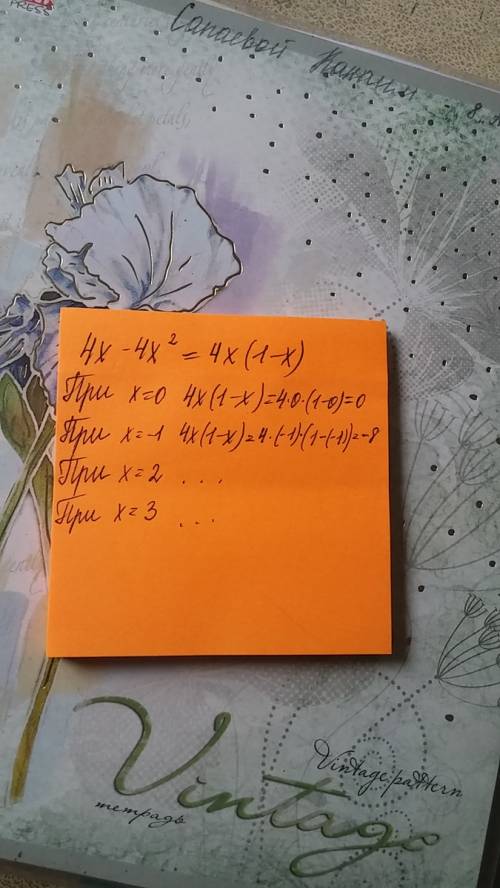 PRESS
Сапаевой
8
4x - 4x² = 4x(1-x)
При x=0 4x(1-x)=4·0·(1-0)=0
При x=-1 4x(1-x)=4·(-1)·(1-(-1))=-8
При x=2 ...
При x=3 ...
Vintage pattern
тетрадь
Vintage